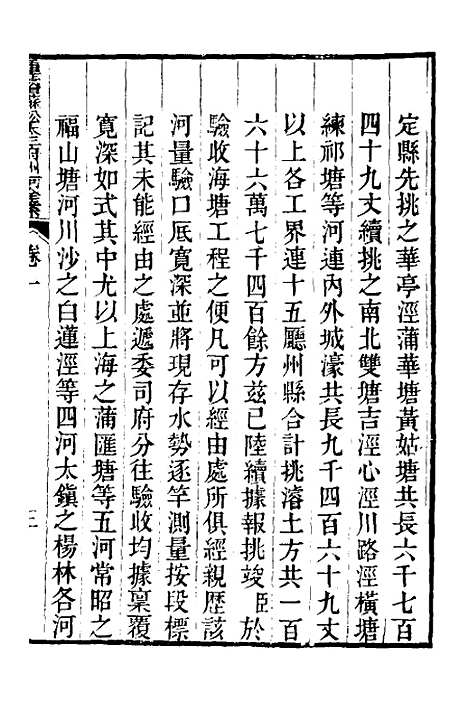 定縣先挑之華亭涇蒲華塘黃姑塘共長六千七百
四十九丈續挑之南北雙塘吉涇心涇川路涇橫塘
練祁塘等河連內外城濠共長九千四百六十九丈
以上各工界連十五廳州縣合計挑濬土方共一百
六十六萬七千四百餘方茲已陸續據報挑竣臣於
驗收海塘工程之便凡可以經由處所俱經親歷該
河量驗口底寬深並將現存水勢逐竿測量按段標
記其未能經由之處遞委司府分往驗收均據稟覆
寬深如式其中尤以上海之蒲匯塘等五河常昭之
福山塘河川沙之白蓮涇等四河太鎮之楊林各河
卷一
三